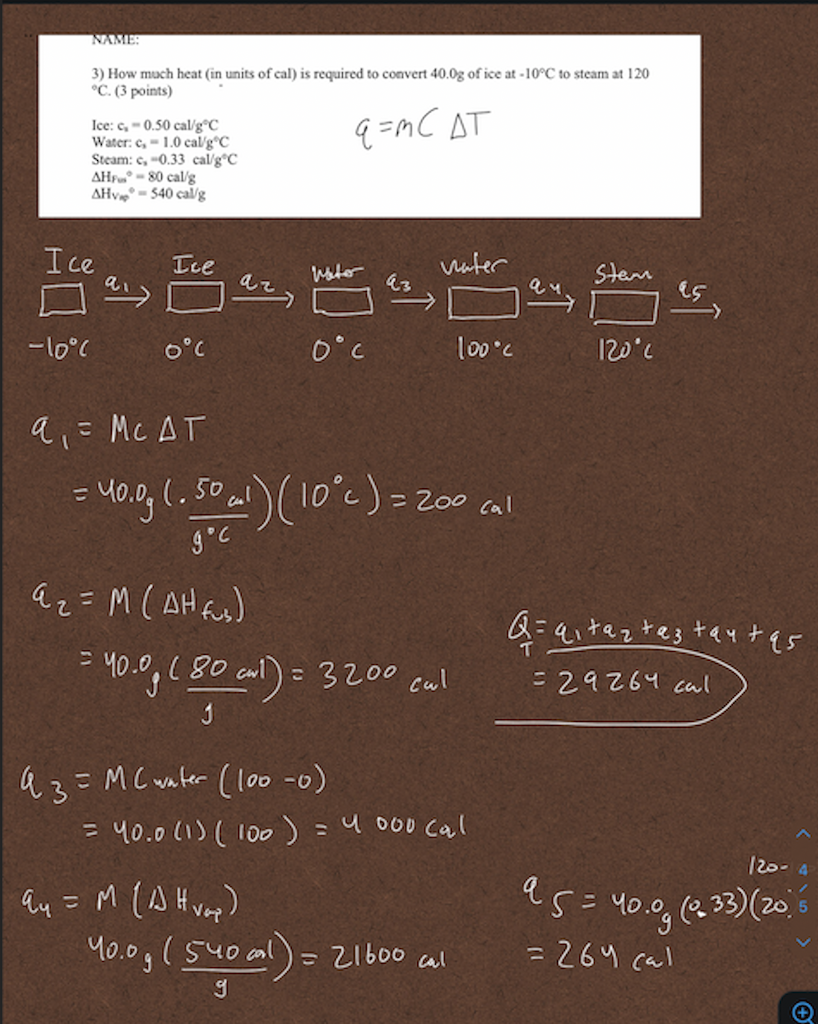 NAME:
3) How much heat (in units of cal) is required to convert 40.0g of ice at -10°C to steam at 120
°C. (3 points)
Ice: cₛ = 0.50 cal/g°C
Water: cₛ = 1.0 cal/g°C
Steam: cₛ =0.33 cal/g°C
ΔH_Fus° = 80 cal/g
ΔH_Vap° = 540 cal/g
q = mC ΔT
Ice q₁ Ice q₂ Water q₃ water q₄ Steam q₅
-10°C 0°C 0°C 100°C 120°C
q₁ = MC ΔT
= 40.0g (.50 cal/g°C)(10°C) = 200 cal
q₂ = M (ΔH fus)
= 40.0g (80 cal/g) = 3200 cal
Q_T = q₁ + q₂ + q₃ + q₄ + q₅
= 29264 cal
q₃ = M C water (100 - 0)
= 40.0 (1) (100) = 4000 cal
q₄ = M (ΔH vap)
40.0g (540 cal/g) = 21600 cal
120-
q₅ = 40.0g (0.33)(20
= 264 cal
4
/
5